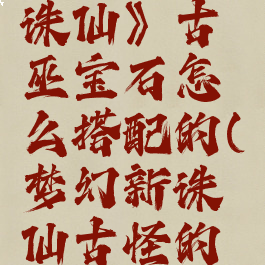 诛仙》古
巫宝石怎
么搭配的(
梦幻新诛
仙古怪的